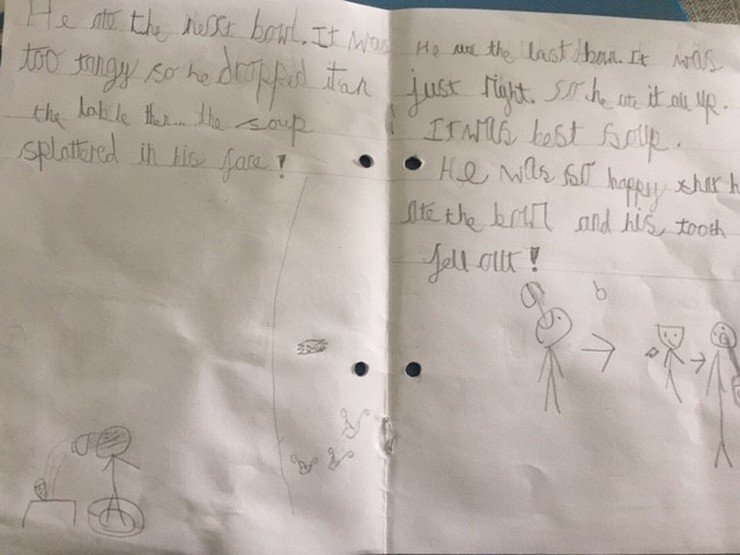 He ate the next bowl. It was
too tangy so he dropped it on
the table then... the soup
splattered in his face!
He ate the last bowl. It was
just right. So he ate it all up.
It was best soup.
He was so happy that h
Ate the bowl and his tooth
fell out!
b